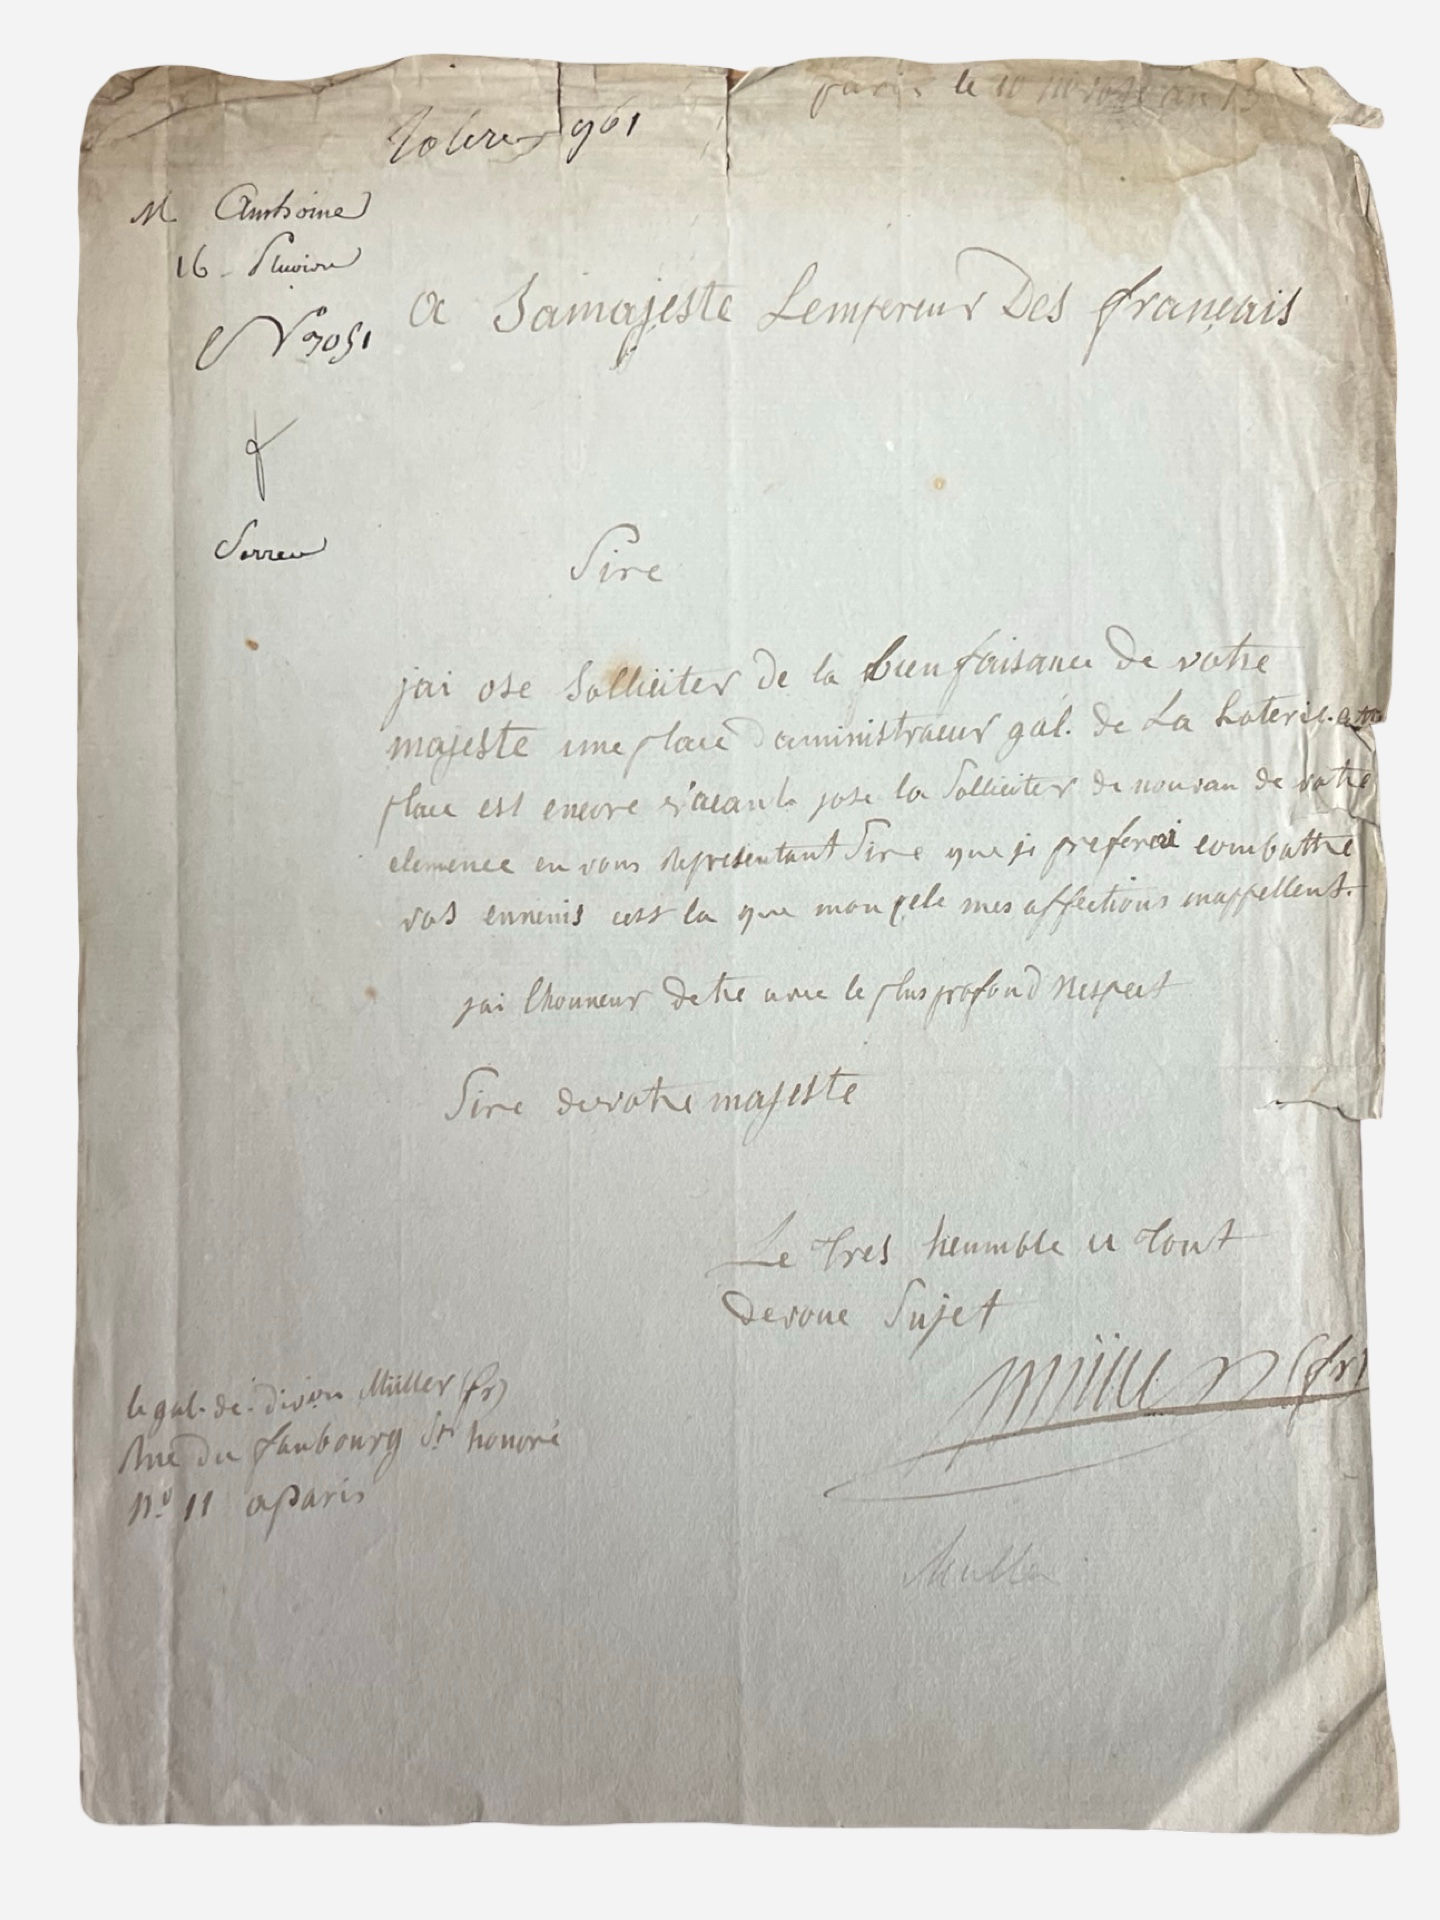 paris le 10 nivose an 13
961
M Anthoine
16 Pluviose
N° 7051
a Samajeste Lempereur Des français
Sire
jai ose Solliciter de la bienfaisance de votre
majeste une place daministraeur gal. de La Loterie.
place est encore vacante jose la Solliciter de nouvau de votre
clemence en vous Representant Sire que je preferai combattre
vos ennemis cest la que mon zele mes affections mappellent.
jai lhonneur detre avec le plus profond Respect
Sire de votre majeste
Le tres heumble et tout
devoue Sujet
müller (fr)
le gal. de. divon Müller (fr)
Rue du faubourg St honoré
n.o 11 a paris
Muller